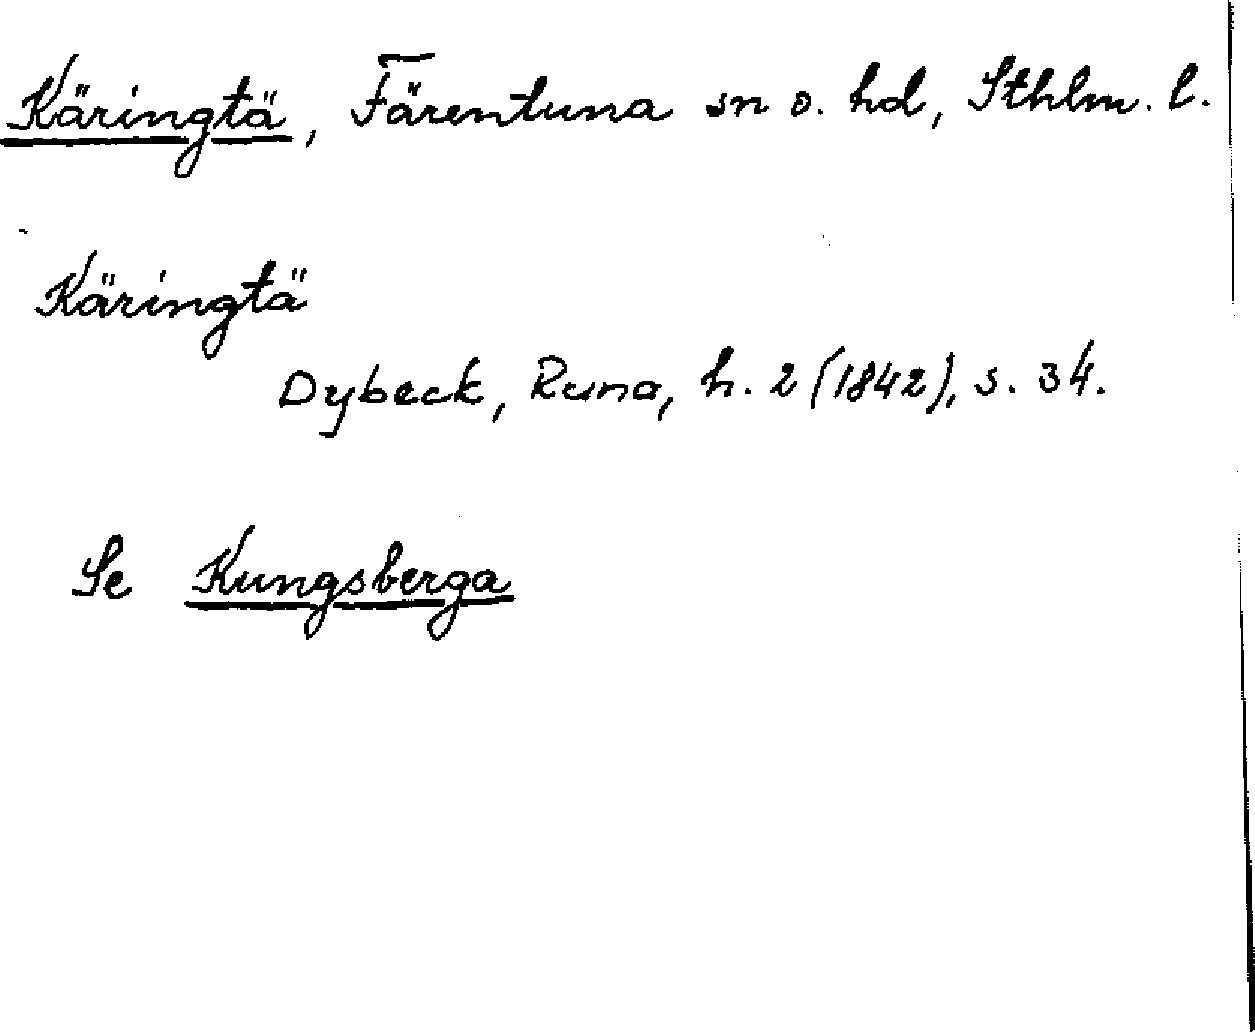 Käringtä, Färentuna sn o. hd, Sthlm. l.
Käringtä
Dybeck, Runa, h. 2 (1842), s. 34.
Se Kungsberga